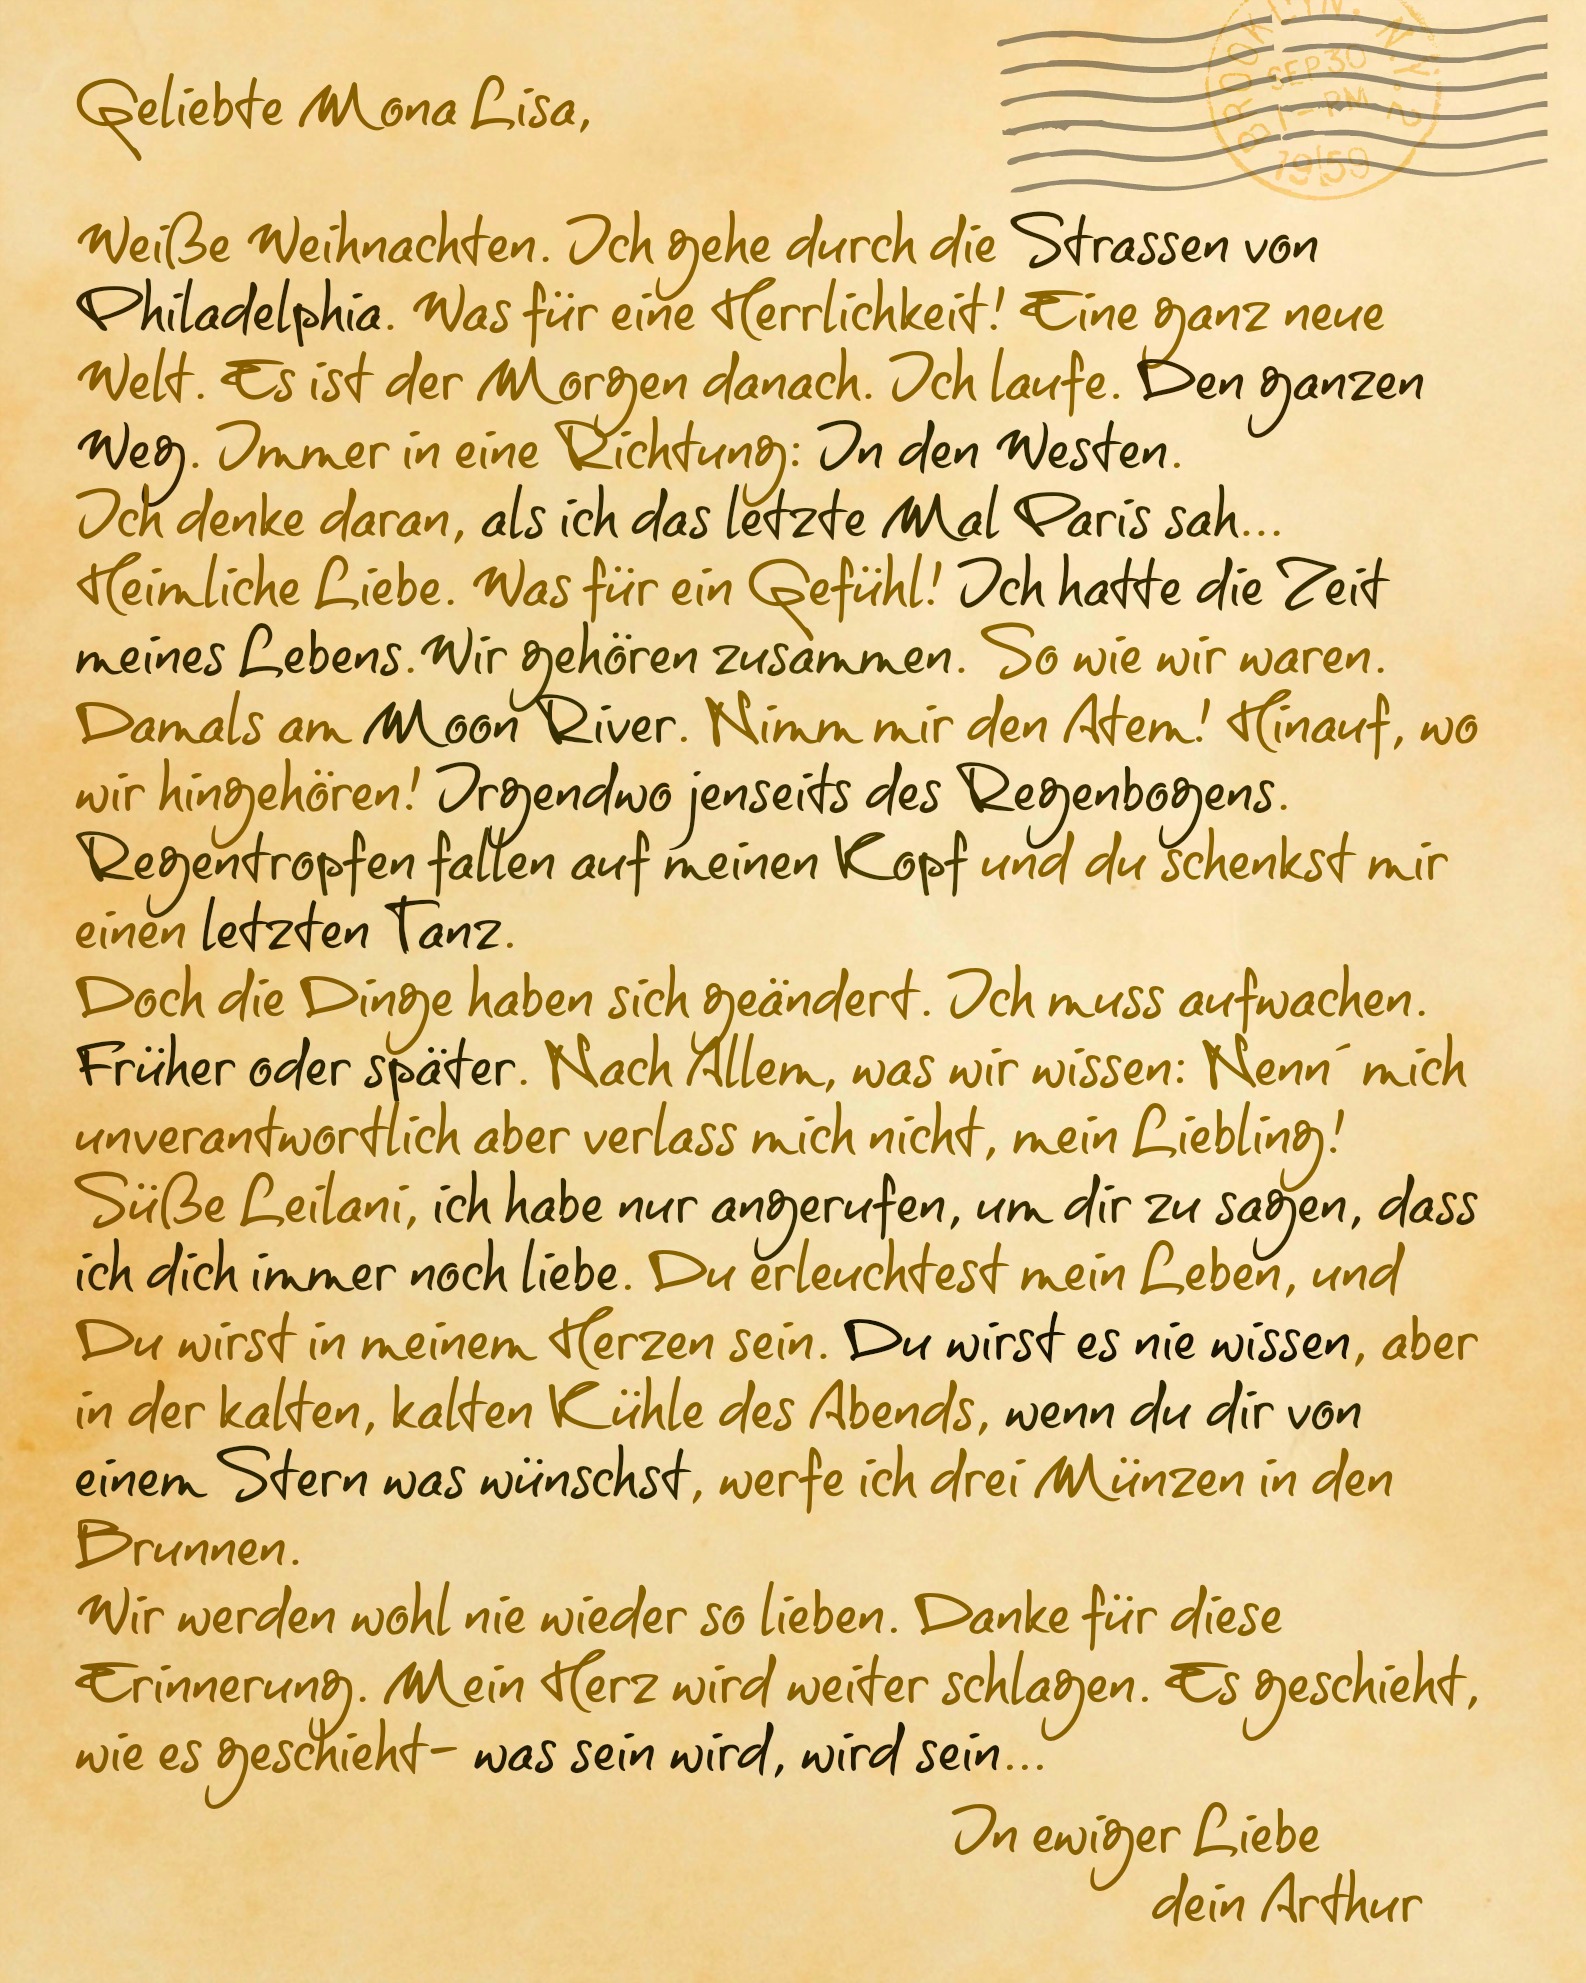 BROOKLYN, N.Y.
SEP 30
1-PM
1959
Geliebte Mona Lisa,
Weiße Weihnachten. Ich gehe durch die Strassen von
Philadelphia. Was für eine Herrlichkeit! Eine ganz neue
Welt. Es ist der Morgen danach. Ich laufe. Den ganzen
Weg. Immer in eine Richtung: In den Westen.
Ich denke daran, als ich das letzte Mal Paris sah...
Heimliche Liebe. Was für ein Gefühl! Ich hatte die Zeit
meines Lebens. Wir gehören zusammen. So wie wir waren.
Damals am Moon River. Nimm mir den Atem! Hinauf, wo
wir hingehören! Irgendwo jenseits des Regenbogens.
Regentropfen fallen auf meinen Kopf und du schenkst mir
einen letzten Tanz.
Doch die Dinge haben sich geändert. Ich muss aufwachen.
Früher oder später. Nach Allem, was wir wissen: Nenn´ mich
unverantwortlich aber verlass mich nicht, mein Liebling!
Süße Leilani, ich habe nur angerufen, um dir zu sagen, dass
ich dich immer noch liebe. Du erleuchtest mein Leben, und
Du wirst in meinem Herzen sein. Du wirst es nie wissen, aber
in der kalten, kalten Kühle des Abends, wenn du dir von
einem Stern was wünschst, werfe ich drei Münzen in den
Brunnen.
Wir werden wohl nie wieder so lieben. Danke für diese
Erinnerung. Mein Herz wird weiter schlagen. Es geschieht,
wie es geschieht- was sein wird, wird sein...
In ewiger Liebe
dein Arthur